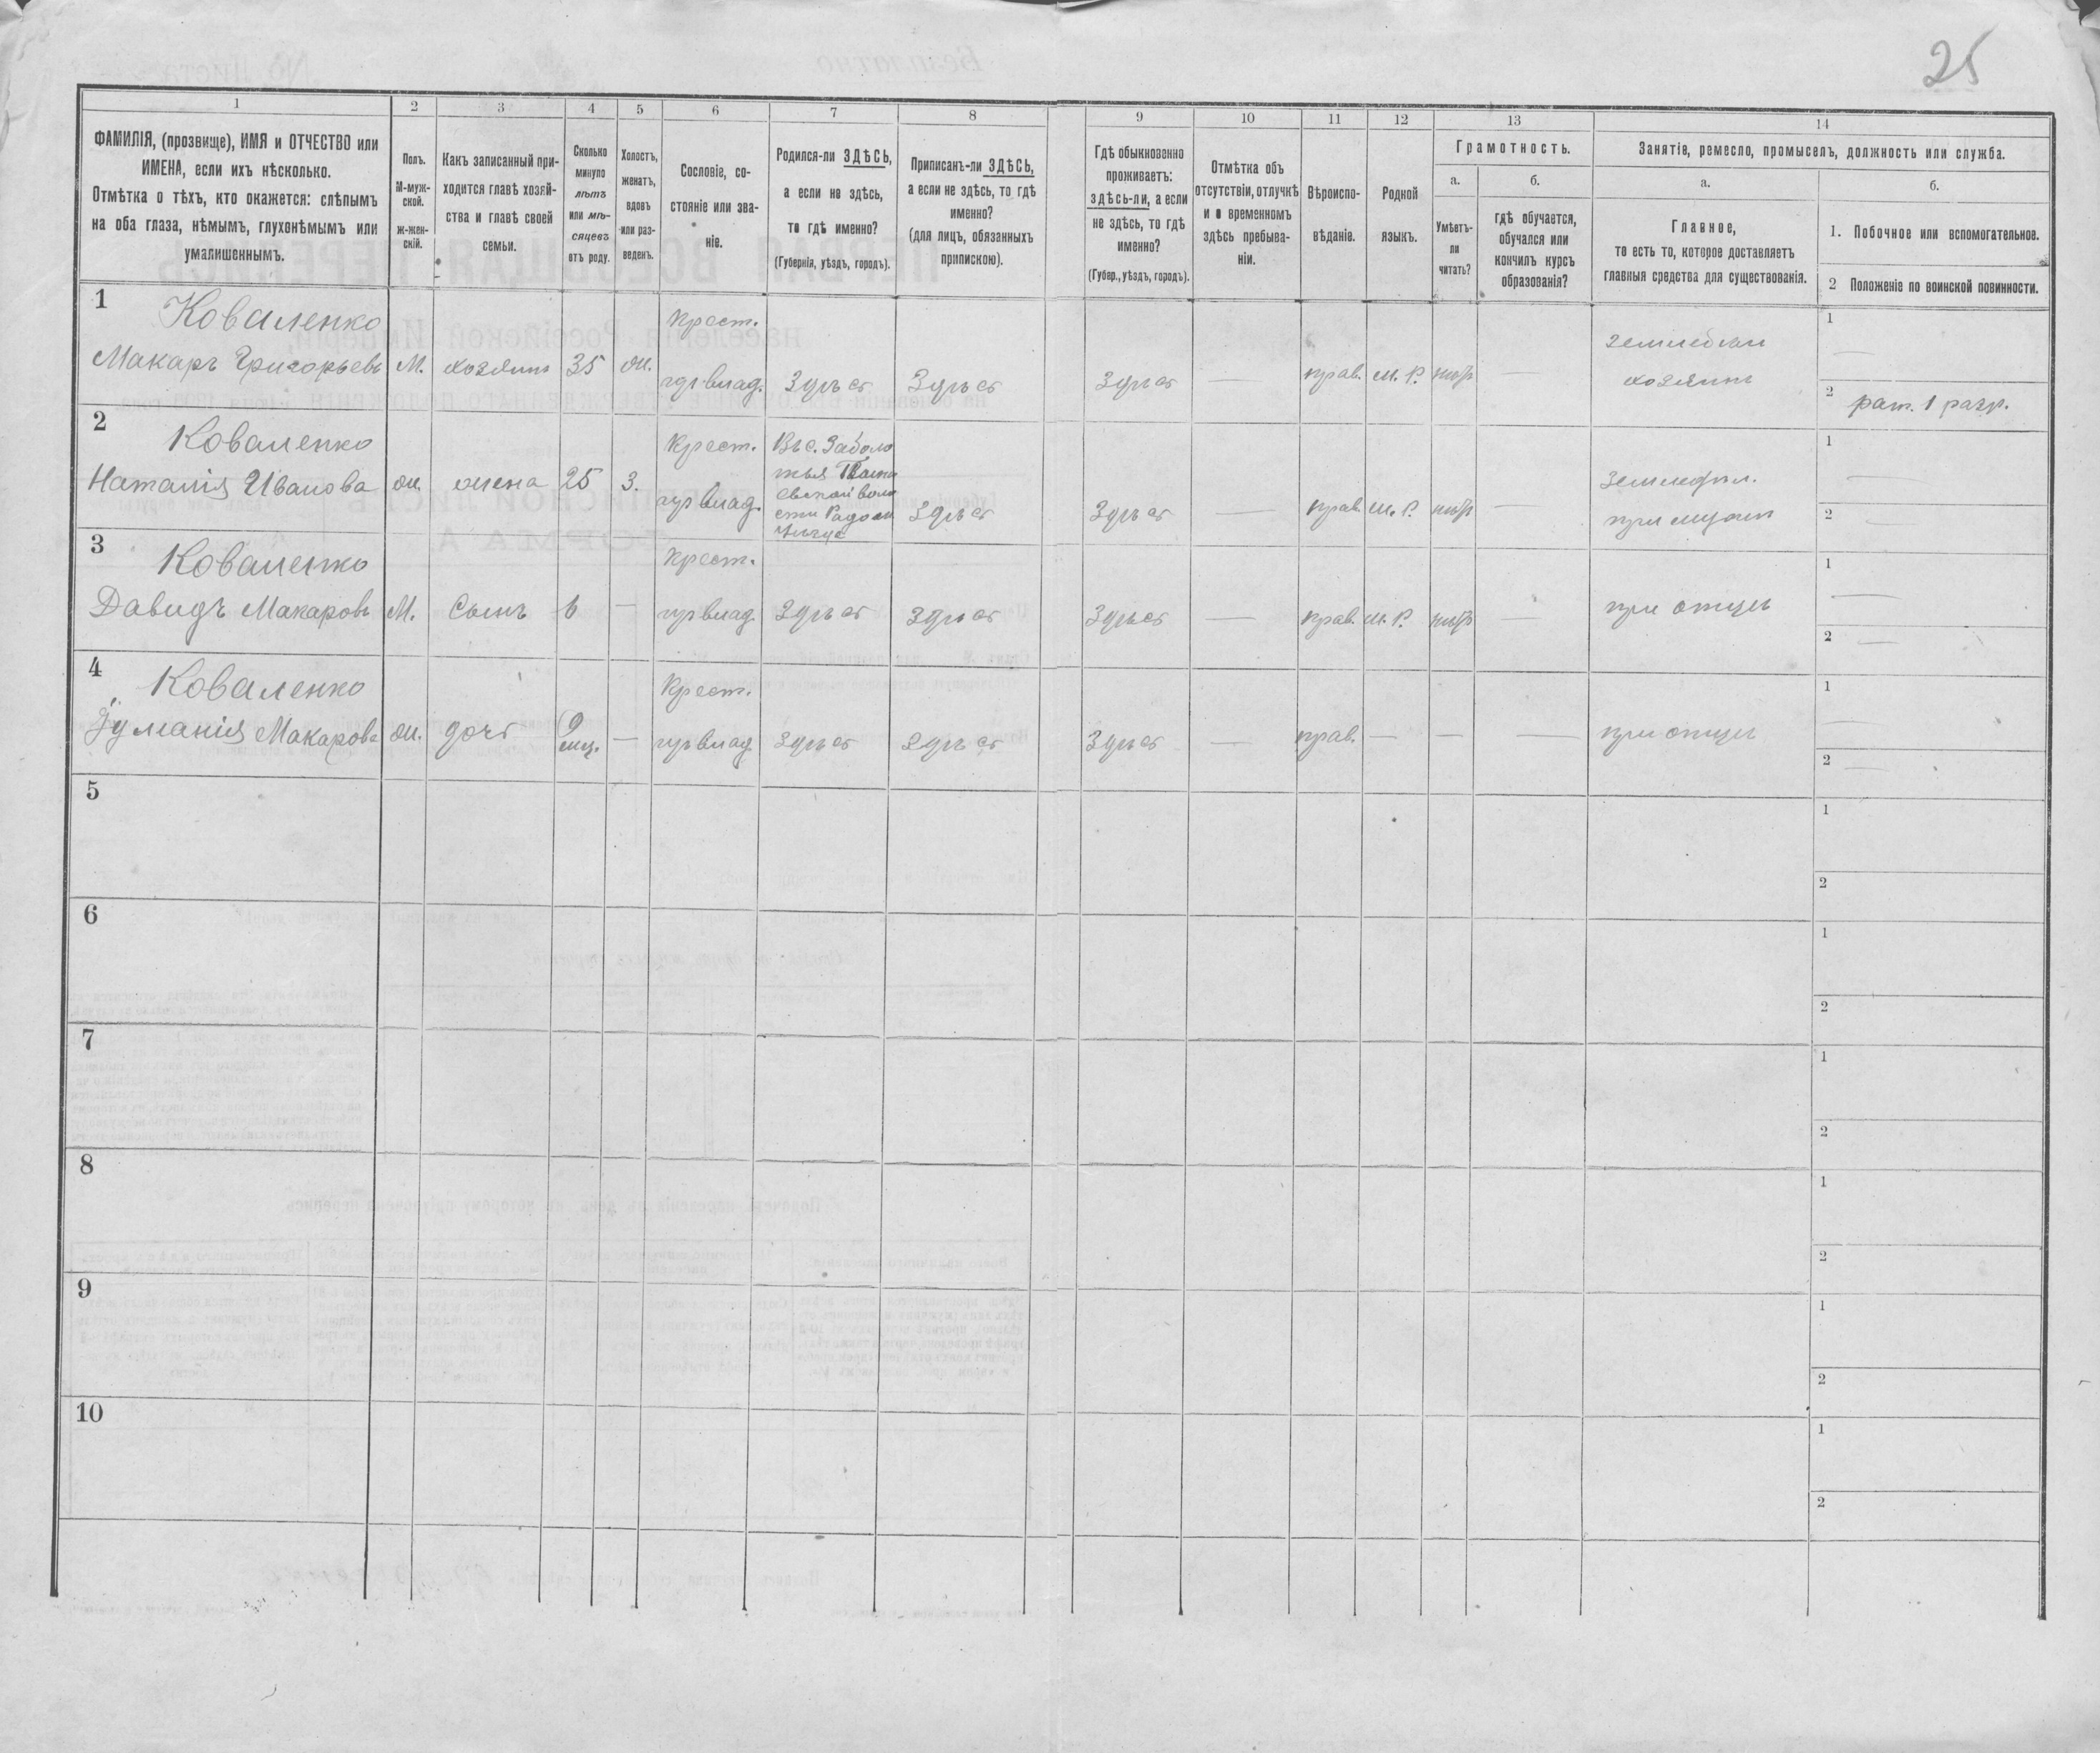 25
1
2
3
4
5
6
7
8
9
10
11
12
13
14
ФАМИЛІЯ, (прозвище), ИМЯ и ОТЧЕСТВО или
ИМЕНА, если ихъ нѣсколько.
Отмѣтка о тѣхъ, кто окажется: слѣпымъ
на оба глаза, нѣмымъ, глухонѣмымъ или
умалишеннымъ.
Полъ.
М-муж-
ской.
ж-жен-
скій.
Какъ записанный при-
ходится главѣ хозяй-
ства и главѣ своей
семьи.
Сколько
минуло
лѣтъ
или мѣ-
сяцевъ
отъ роду.
Холостъ,
женатъ,
вдовъ
или раз-
веденъ.
Сословіе, со-
стояніе или зва-
ніе.
Родился-ли ЗДѢСЬ,
а если не здѣсь,
то гдѣ именно?
(Губернія, уѣздъ, городъ).
Приписанъ-ли ЗДѢСЬ,
а если не здѣсь, то гдѣ
именно?
(для лицъ, обязанныхъ
припискою).
Гдѣ обыкновенно
проживаетъ:
здѣсь-ли, а если
не здѣсь, то гдѣ
именно?
(Губер., уѣздъ, городъ).
Отмѣтка объ
отсутствіи, отлучкѣ
и о временномъ
здѣсь пребыва-
ніи.
Вѣроиспо-
вѣданіе.
Родной
языкъ.
Грамотность.
а.
Умѣетъ-
ли
читать?
б.
гдѣ обучается,
обучался или
кончилъ курсъ
образованія?
Занятіе, ремесло, промыселъ, должность или служба.
а.
Главное,
то есть то, которое доставляетъ
главныя средства для существованія.
б.
1. Побочное или вспомогательное.
2 Положеніе по воинской повинности.
1
Коваленко
Макаръ Григорьевъ
М.
хозяинъ
35
ж.
Крест.
влад.
Здѣсь
Здѣсь
Здѣсь
—
прав.
м. Р.
нѣтъ
—
хозяинъ
1
—
2
рат. 1 разр.
2
Коваленко
Наталія Иванова
ж.
жена
25
З.
Крест.
влад.
Въ с. Заболо
тья
Здѣсь
Здѣсь
—
прав.
м. Р.
нѣтъ
—
Земледѣл.
при мужѣ
1
—
2
—
3
Коваленко
Давидъ Макаровъ
М.
Сынъ
6
—
Крест.
влад.
Здѣсь
Здѣсь
Здѣсь
—
прав.
м. Р.
нѣтъ
—
при отцѣ
1
—
2
—
4
Коваленко
Макарова
ж.
дочь
9
мц.
—
Крест.
влад.
Здѣсь
Здѣсь
Здѣсь
—
прав.
—
—
—
при отцѣ
1
—
2
—
5
1
2
6
1
2
7
1
2
8
1
2
9
1
2
10
1
2